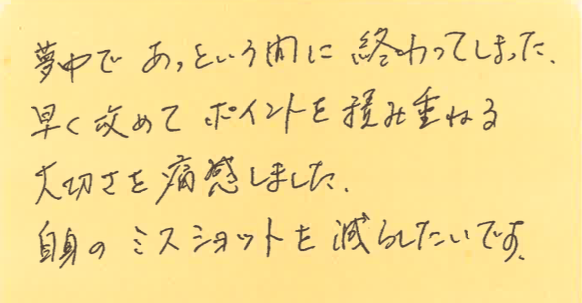 夢中で あっという間に 終わってしまった.
早く攻めて ポイントを積み重ねる
大切さを痛感しました.
自身の ミスショットを 減らしたいです.